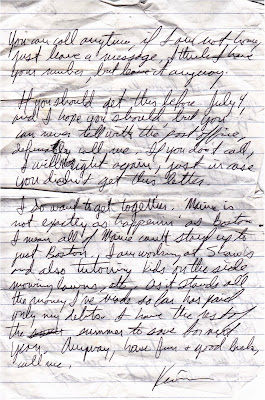 You can call anytime, if I am not home,
just leave a message, I think I have
your number, but leave it anyway.
If you should get this before July 4,
and I hope you should but you
can never tell with the post office,
definitely call me. If you don't call,
I will write again, just in case
you didn't get this letter.
I do want to get together. Maine is
not exactly as happenin' as Boston.
I mean all of Maine can't stack up to
just Boston. I am working at Shaw's
and also tutoring kids on the side,
mowing lawns, etc, as it stands all
the money I've made so far has paid
only my debts. I have the rest of
the summer to save for next
year. Anyway, have fun & good luck,
call me,
Kevin